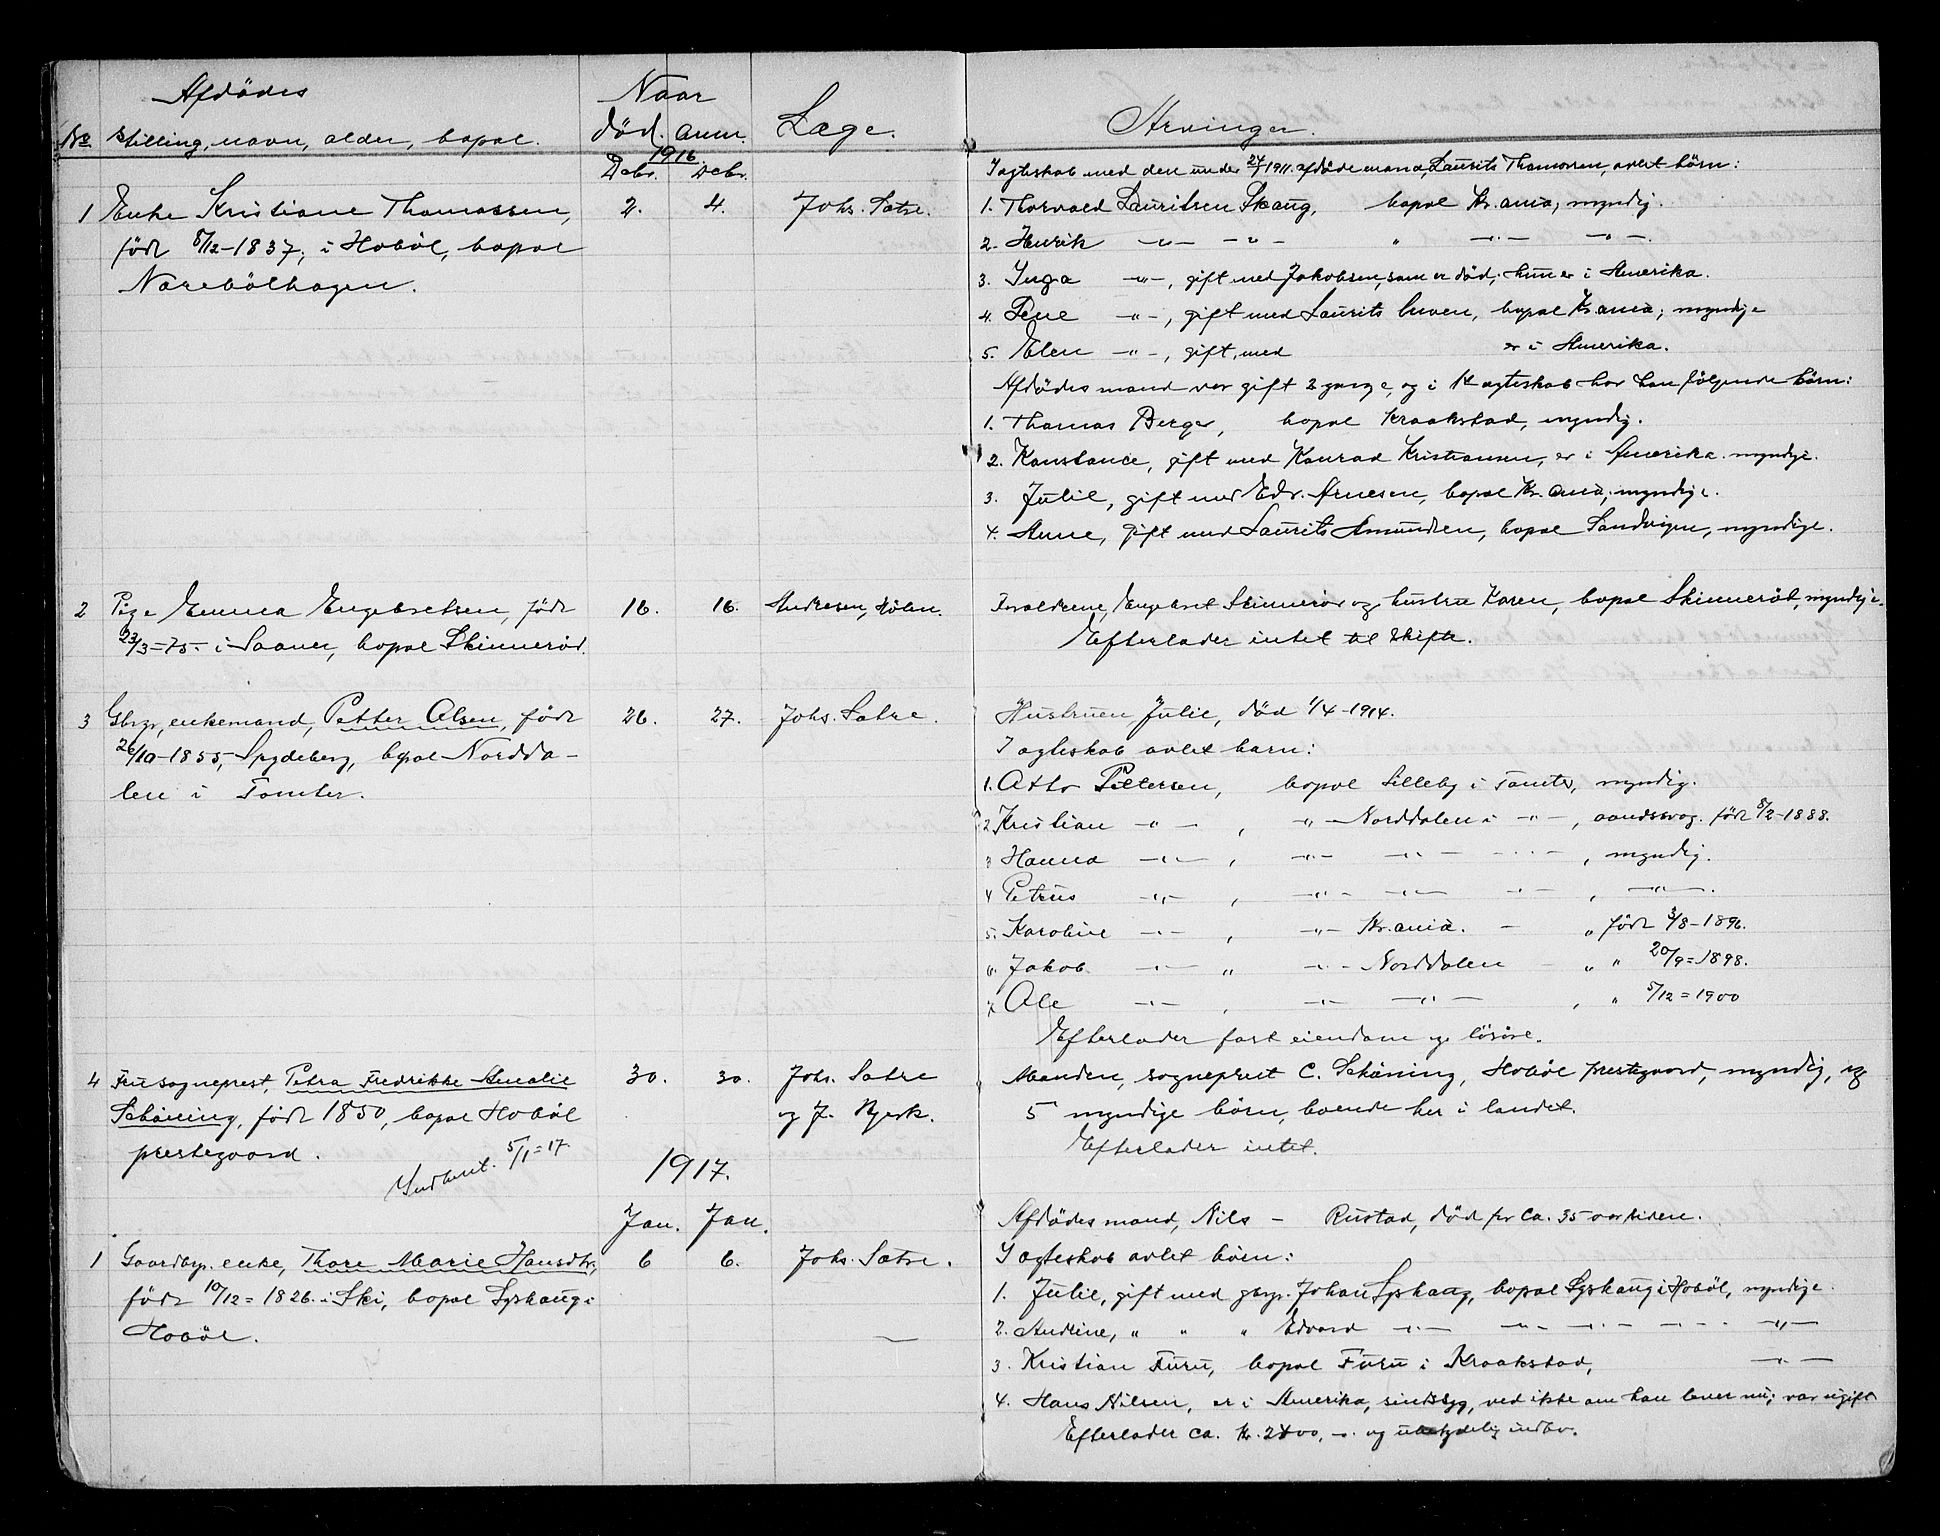 Afdödes
Naar
No. stilling, navn, alder, bopæl.
död. anm.
Læge.
Arvinger.
1916.
Decbr. Decbr.
1 Enke Kristiane Thomassen, 2. 4. Johs. Sætre.
född 8/12-1837, i Hobøl, bopæl
Narebölhagen.
I ægteskab med den under 24/ 1911. afdöde mand, Laurits Thomassen, avlet börn:
1. Thorvald Lauritsen Skaug, bopæl Kr.ania, myndig.
2. Henrik -"- -"- " -"- -"-.
3. Inga -"-, gift med Jakobsen, som er död; hun er i Amerika.
4. Lene -"-, gift med Laurits , bopæl Kr.ania; myndige
5. Elen -"-, gift, med er i Amerika.
Afdödes mand var gift 2 gange, og i 1st ægteskab har han fölgende börn:
1. Thomas Berger, bopæl Kraakstad, myndig.
2. Konstance, gift med Konrad Kristiansen, er i Amerika. myndige.
3. Julie, gift med Edv. Arnesen, bopæl Kr.ania, myndige.
4. Anne, gift med Laurits Amundsen, bopæl Sandvigen, myndige.
2 Pige Emma Engebretsen, född 16. 16. Andresen, Hölen.
23/3=75- i Saaner, bopæl Skinneröd.
Forældrene, Engebret Skinneröd og hustru Karen, bopæl Skinneröd, myndige.
Efterlader intet til skifte.
3 Gbrgr, enkemand, Petter Olsen, född 26. 27. Johs. Sætre.
26/10-1855, Spydeberg, bopæl Nordda-
len i Tomter.
Hustruen, Julie, död 1/4-1914.
I ægteskab avlet barn:
1. Otto Pettersen, bopæl Lilleby i Tomter, myndig.
2. Kristian -"-, -"- Norddalen i -"-, aandssvag. född 8/2-1888.
3 Hanna -"-, -"- -"- -"-, myndig.
4 Petrus -"-, -"- -"- -"-, -"-.
5. Karoline -"-, -"- Kr.ania. - " född 3/8-1896.
6. Jakob -"- " -"- Norddalen - " " 20/9=1898.
7. Ole -"-, -"- -"- , " 5/12=1900
Efterlader fast eiendom og lösöre.
4 Fru sogneprest, Petra Fredrikke Amalie 30. 30. Johs. Sætre
Schöning, född 1850, bopæl Hoböl og J. Bjerk.
prestegaard.
Indberet. 5/1=17
Manden, sogneprest C. Schöning, Hoböl prestegaard, myndig, og
5 myndige börn, boende her i landet.
Efterlader intet.
1917.
Jan. Jan.
1 Gaardbr. enke, Thore Marie Hansdtr, 6 6. Johs. Sætre.
född 10/12=1826. i Ski, bopæl Syshaug i
Hoböl.
Afdödes mand, Nils - Rustad, död for ca. 35 aar siden.
I ægteskab avlet börn:
1. Julie, gift med gbrgr. Johan Syshaug, bopæl Syshaug i Hoböl, myndige.
2. Andrine, " " " Edvard -"- -"- -"- -"- -"-
3. Kristian Furu, bopæl Furu i Kraakstad, -"-
4. Hans Nilsen, er i Amerika, sindssyg, ved ikke om han lever nu; var ugift
Efterlader ca. kr. 2400,-. og ubetydelig indbo.